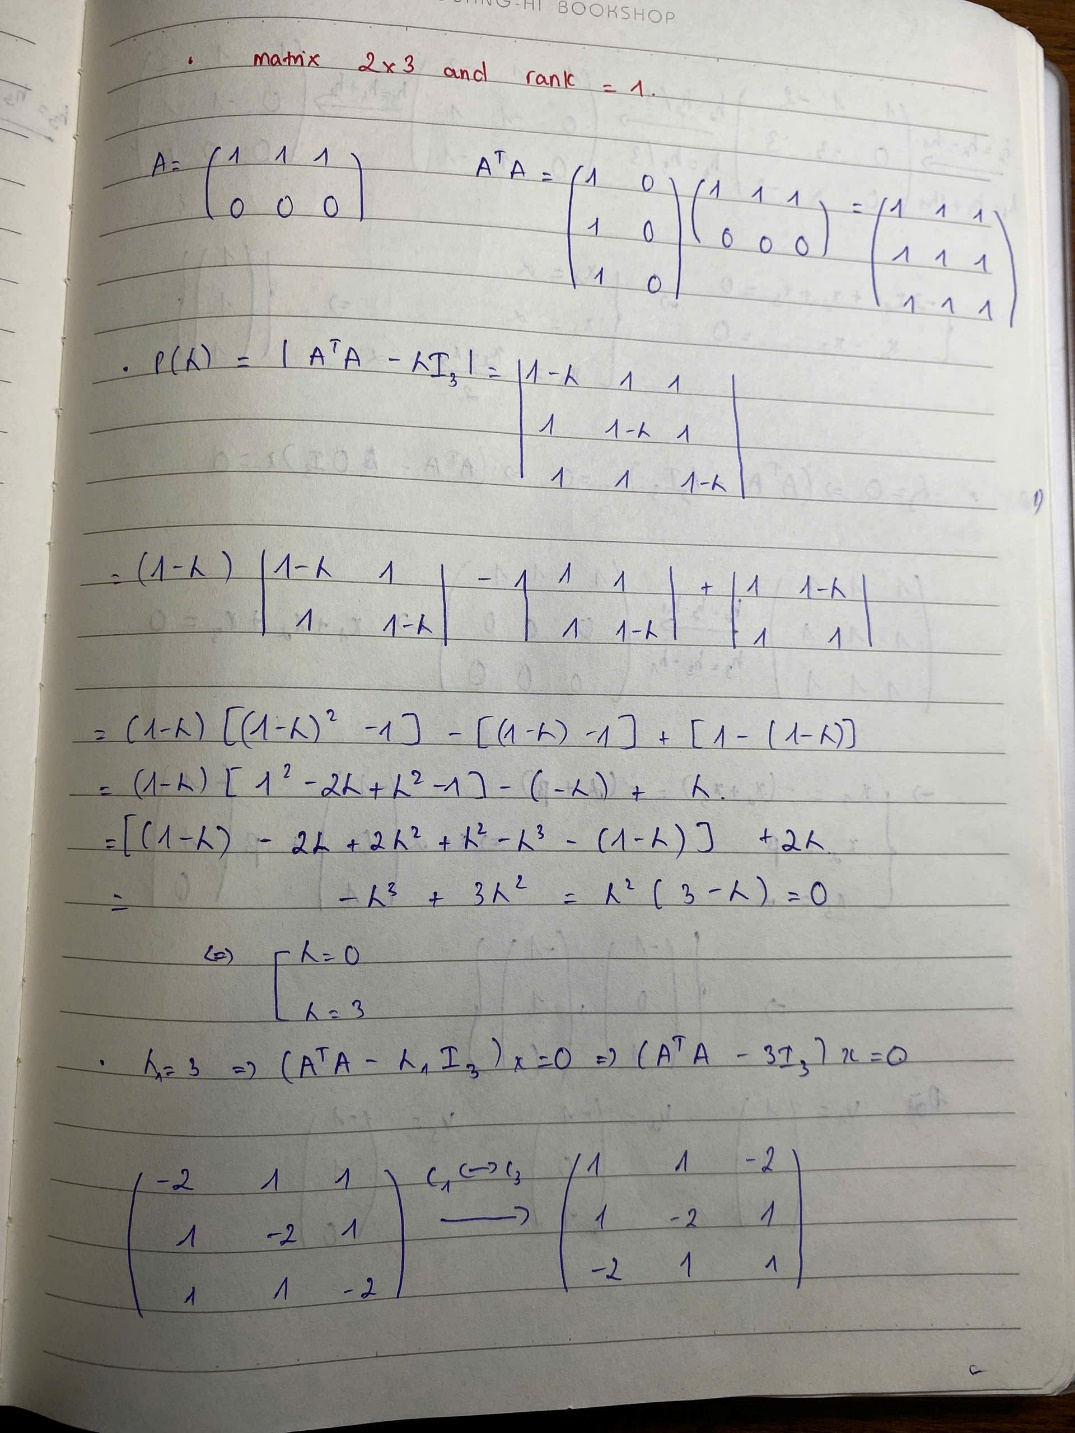 BOOKSHOP
. matrix 2x3 and rank = 1.
A = (1 1 1
0 0 0)
AᵀA = (1 0
1 0
1 0) (1 1 1
0 0 0) = (1 1 1
1 1 1
1 1 1)
. P(λ) = | AᵀA - λI₃ | = |1-λ 1 1
1 1-λ 1
1 1 1-λ|
= (1-λ) |1-λ 1
1 1-λ| - 1 |1 1
1 1-λ| + |1 1-λ
1 1|
= (1-λ) [(1-λ)² -1] - [(1-λ) -1] + [1 - (1-λ)]
= (1-λ) [ 1² - 2λ + λ² -1] - (-λ) + λ.
= [(1-λ) - 2λ + 2λ² + λ² - λ³ - (1-λ)] + 2λ.
= -λ³ + 3λ² = λ² (3 - λ) = 0
(=) [ λ = 0
λ = 3
. λ₁ = 3 => (AᵀA - λ₁ I₃) x = 0 => (AᵀA - 3I₃) x = 0
(-2 1 1
1 -2 1
1 1 -2) C₁ <-> C₃ → (1 1 -2
1 -2 1
-2 1 1)